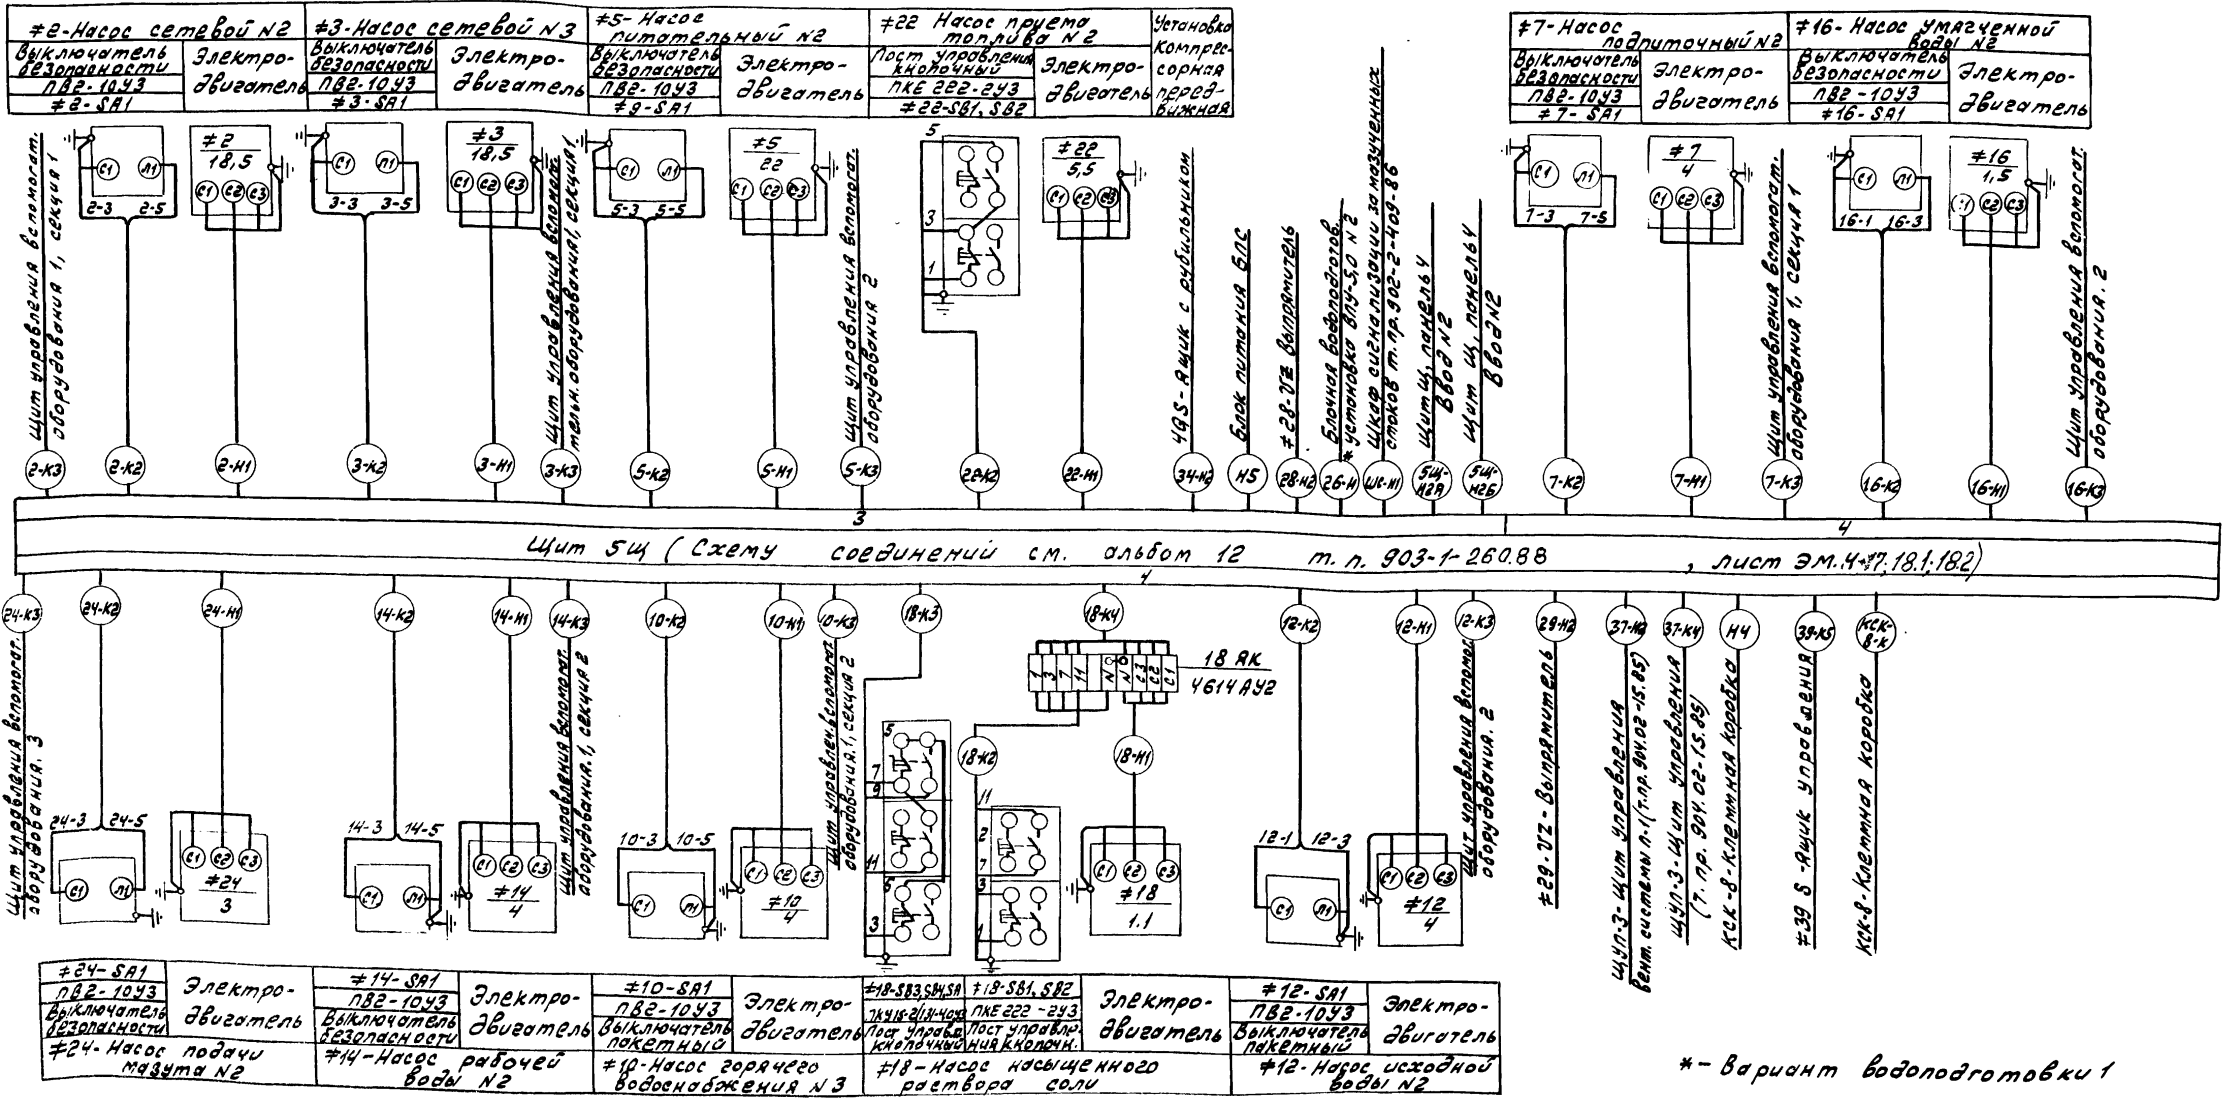 #2-Насос сетевой N2
Выключатель
безопасности
ПВ2-10У3
#2-SA1
Электро-
двигатель
#3-Насос сетевой N3
Выключатель
безопасности
ПВ2-10У3
#3-SA1
Электро-
двигатель
#5-Насос
питательный N2
Выключатель
безопасности
ПВ2-10У3
#9-SA1
Электро-
двигатель
#22 Насос приема
топлива N2
Пост управления
кнопочный
ПКЕ 222-2У3
#22-SB1, SB2
Электро-
двигатель
Установка
компрес-
сорная
перед-
вижная
#7-Насос
подпиточный N2
Выключатель
безопасности
ПВ2-10У3
#7-SA1
Электро-
двигатель
#16-Насос умягченной
воды N2
Выключатель
безопасности
ПВ2-10У3
#16-SA1
Электро-
двигатель
Щит управления вспомогат.
оборудования 1, секция 1
С1 Л1
2-3 2-5
#2
18,5
С1 С2 С3
С1 Л1
3-3 3-5
#3
18,5
С1 С2 С3
Щит управления вспомога-
тельн. оборудования 1, секция 1
С1 Л1
5-3 5-5
#5
22
С1 С2 С3
Щит управления вспомогат.
оборудования 2
5
3
1
#22
5,5
С1 С2 С3
4QS-Ящик с рубильником
Блок питания БПС
#28-VZ Выпрямитель
Блочная водоподготов.
* установка ВПУ-5,0 N2
Шкаф сигнализации замазученных
стоков т.пр.902-2-409-86
Щит Щ, панель 4
Ввод N2
Щит Щ, панель 4
Ввод N2
С1 Л1
7-3 7-5
#7
4
С1 С2 С3
Щит управления вспомогат.
оборудования 1, секция 1
С1 Л1
16-1 16-3
#16
1,5
С1 С2 С3
Щит управления вспомогат.
оборудования. 2
2-К3 2-К2 2-Н1 3-К2 3-Н1 3-К3 5-К2 5-Н1 5-К3 22-К2 22-Н1 34-Н2 Н5 28-Н2 26-Н ШС-Н1 5Щ-Н2А 5Щ-Н2Б 7-К2 7-Н1 7-К3 16-К2 16-Н1 16-К3
3 4
Щит 5Щ (Схему соединений см. альбом 12 т.п. 903-1-260.88 , лист ЭМ.4-17; 18.1; 18.2)
4
24-К3 24-К2 24-Н1 14-К2 14-Н1 14-К3 10-К2 10-Н1 10-К3 18-К3 18-К4 12-К2 12-Н1 12-К3 29-Н2 37-Н2 37-К4 Н4 39-К5 КСК-8-К
Щит управления вспомогат.
оборудования. 3
24-3 24-5
С1 Л1
С1 С2 С3
#24
3
14-3 14-5
С1 Л1
С1 С2 С3
#14
4
Щит управления вспомогат.
оборудования. 1, секция 2
10-3 10-5
С1 Л1
С1 С2 С3
#10
4
Щит управлен. вспомогат.
оборудования. 1, секция 2
5
7
9
11
6
3
1 3 7 11 N N С3 С2 С1
18 ЯК
4614 АУ2
18-К2
18-Н1
11
2
7
3
1
С1 С2 С3
#18
1.1
12-1 12-3
С1 Л1
С1 С2 С3
#12
4
Щит управления вспомог.
оборудования. 2
#29-VZ-Выпрямитель
ЩУП-3-Щит управления
вент. системы П-1(т.пр.904.02-15.85)
ЩУП-3-Щит управления
(т. пр. 904.02-15.85)
КСК-8-Клеммная коробка
#39 S-Ящик управления
КСК-8-Клеммная коробка
#24-SA1
ПВ2-10У3
Выключатель
безопасности
Электро-
двигатель
#24-Насос подачи
мазута N2
#14-SA1
ПВ2-10У3
Выключатель
безопасности
Электро-
двигатель
#14-Насос рабочей
воды N2
#10-SA1
ПВ2-10У3
Выключатель
пакетный
Электро-
двигатель
#10-Насос горячего
водоснабжения N3
#18-SB3,SB4,SA
Пост управл.
кнопочный
#18-SB1, SB2
ПКЕ 222-2У3
Пост управле-
ния кнопочн.
Электро-
двигатель
#18-Насос насыщенного
раствора соли
#12-SA1
ПВ2-10У3
Выключатель
пакетный
Электро-
двигатель
#12-Насос исходной
воды N2
*-Вариант водоподготовки 1